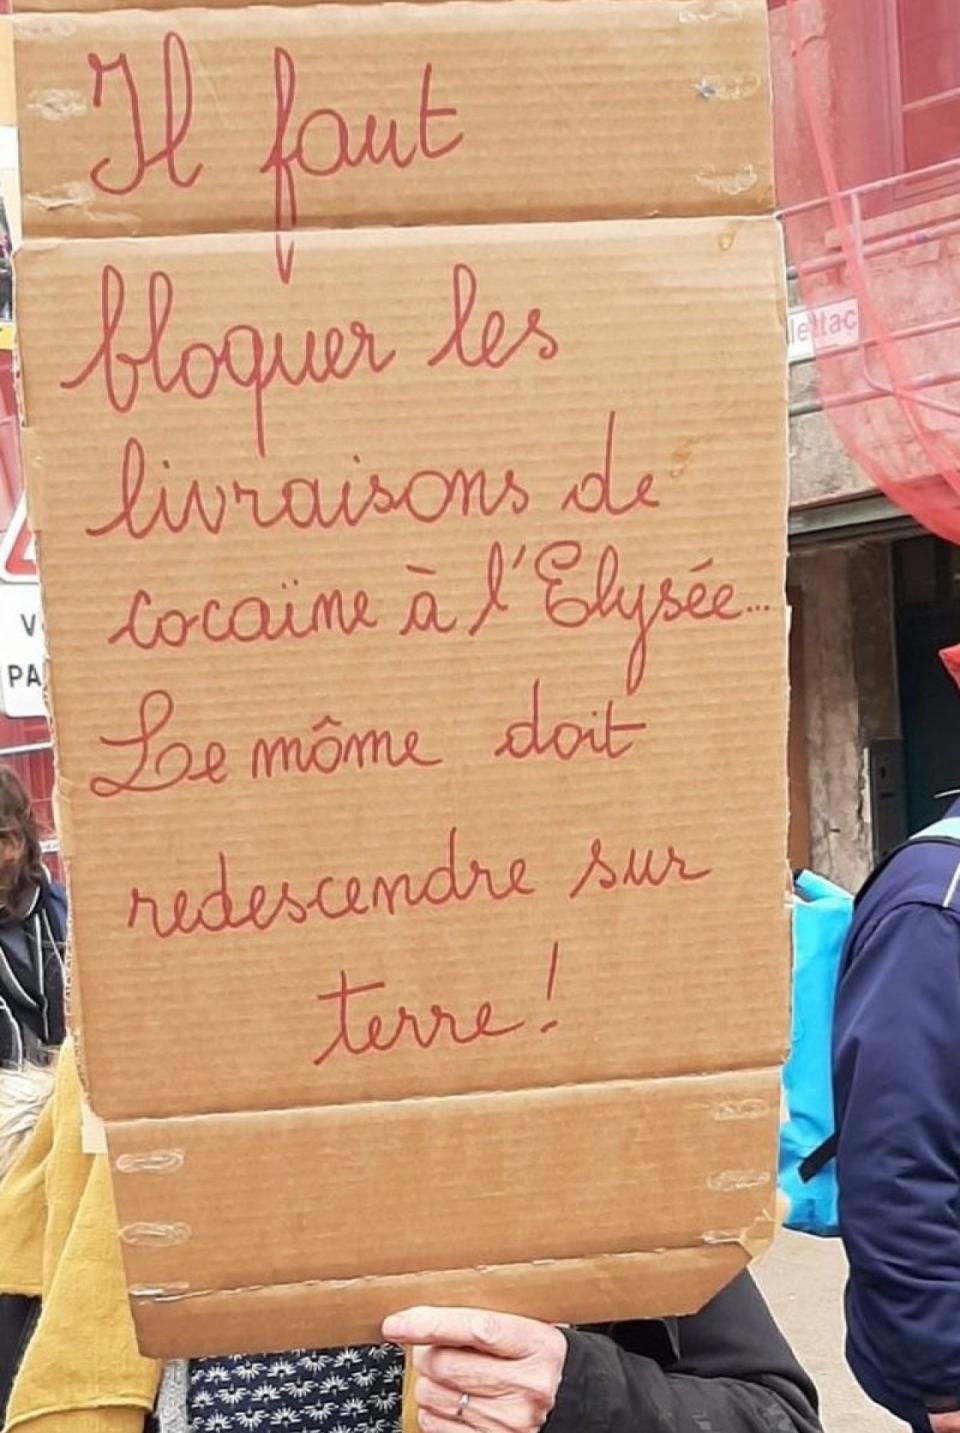 Il faut
bloquer les
livraisons de
cocaïne à l'Elysée...
Le môme doit
redescendre sur
terre !